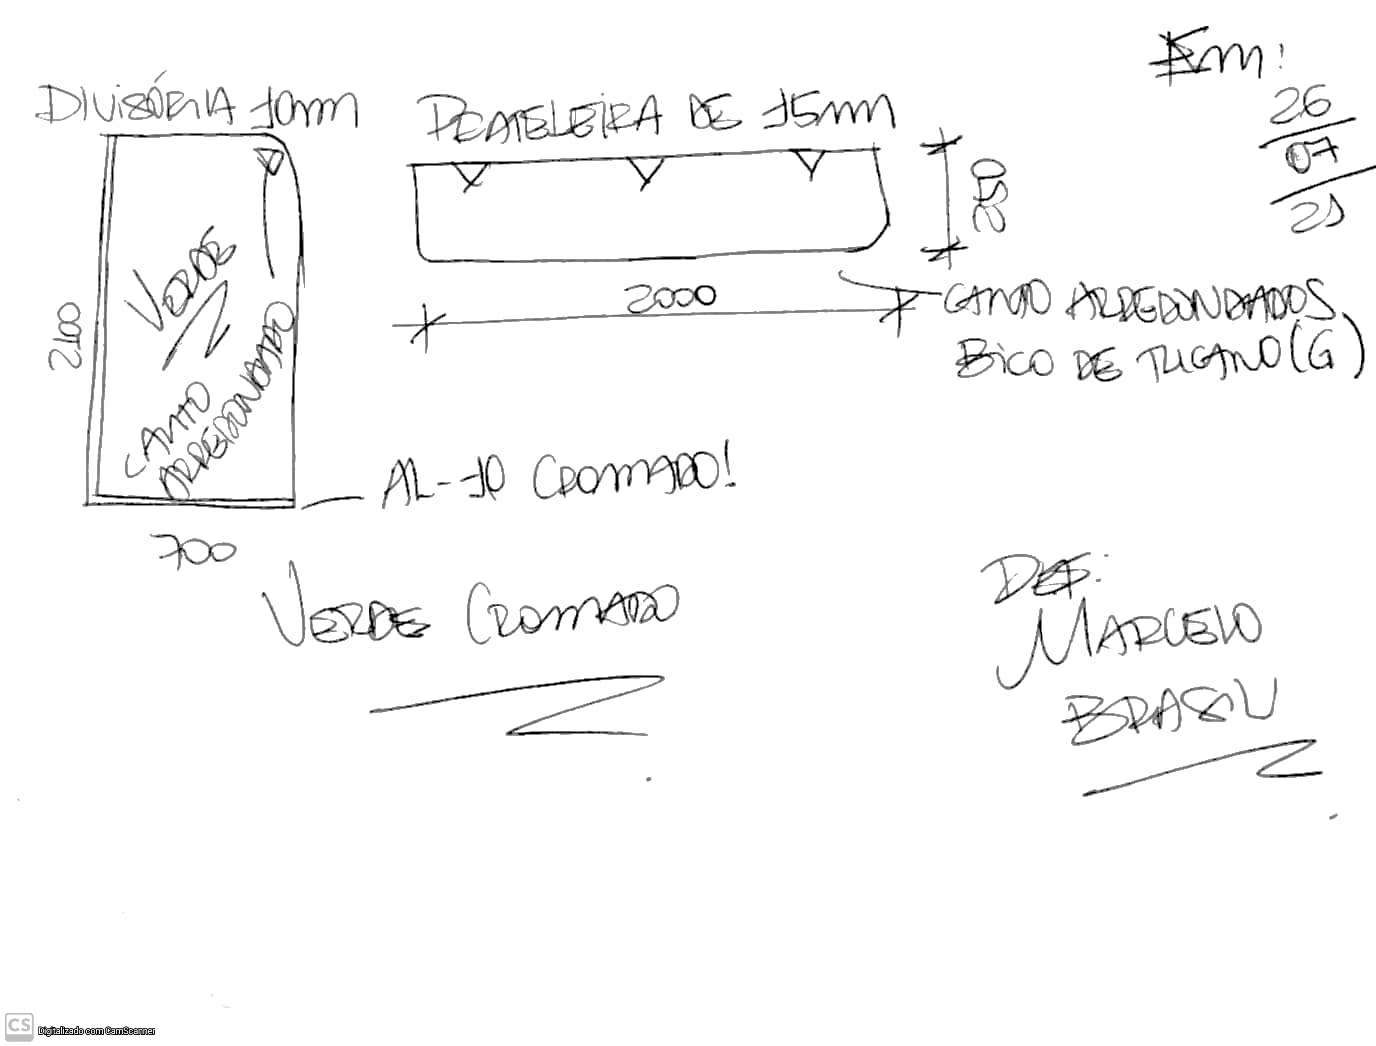 Em:
26
07
21
DIVISÓRIA 10mm
PRATELEIRA DE 15mm
2100
VERDE
CANTO
ARREDONDADO
700
250
2000
CANTO ARREDONDADOS
BICO DE TUCANO (G)
AL-10 CROMADO!
VERDE CROMADO
MARCELO
BRASIL
CS Digitalizado com CamScanner